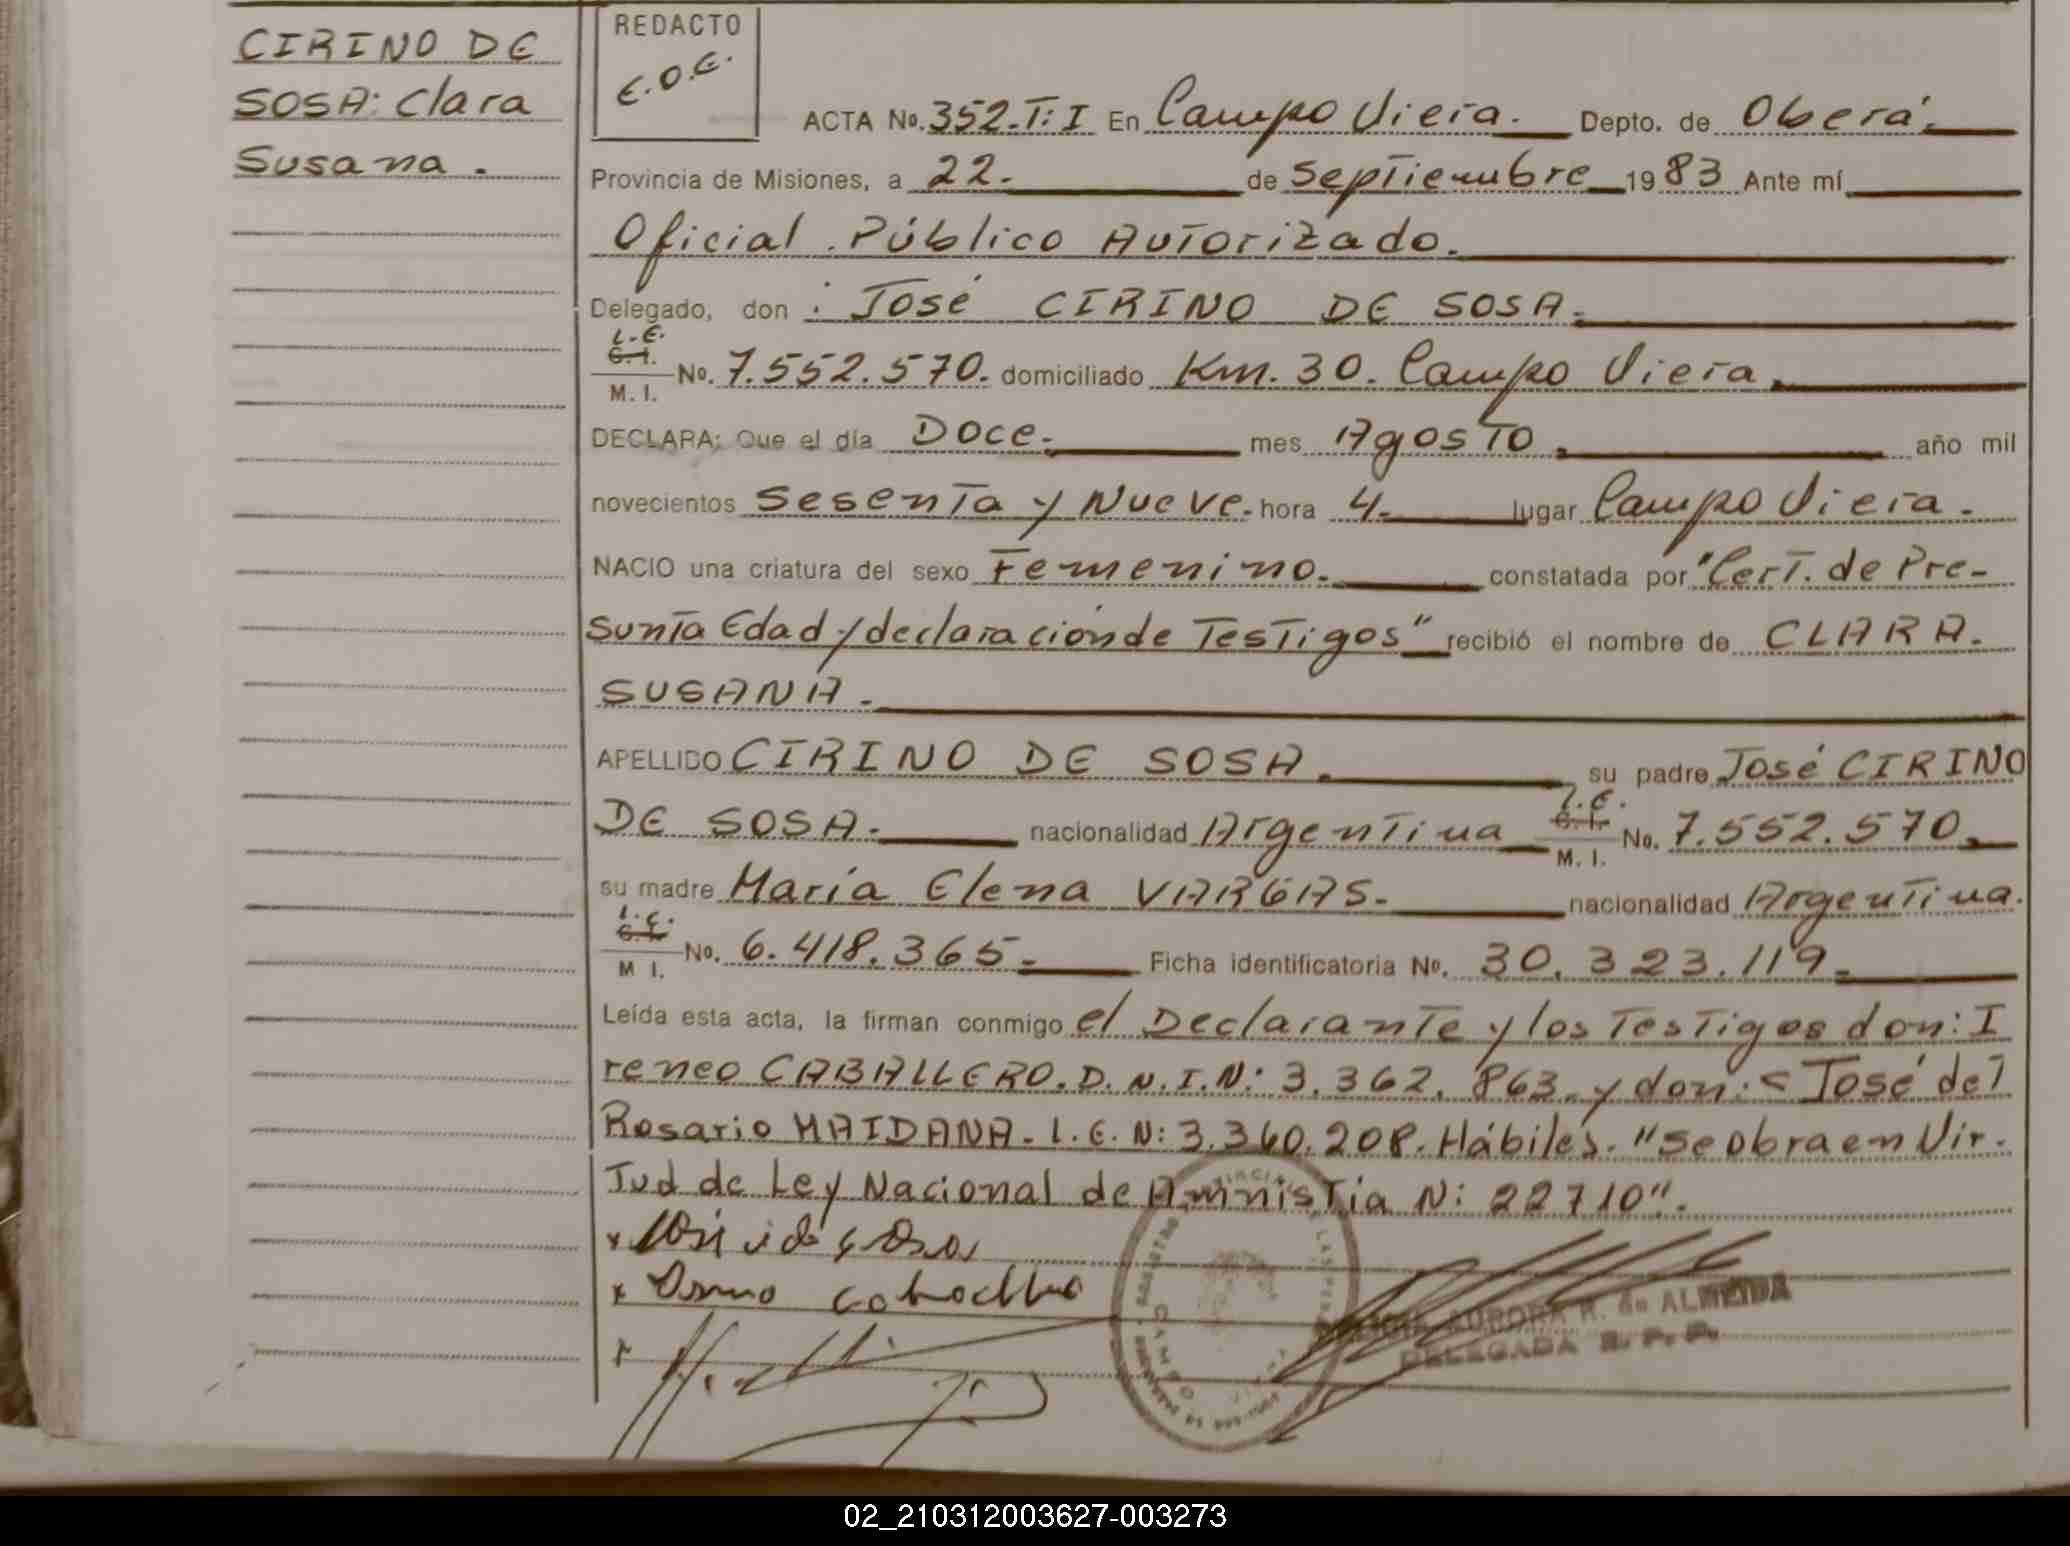 CIRINO DE
SOSA: Clara
Susana.
REDACTO
E.O.E.
ACTA No. 352.T:I En Campo Viera. Depto. de Oberá.
Provincia de Misiones, a 22. de Septiembre 1983 Ante mí
Oficial Público Autorizado.
Delegado, don : José CIRINO DE SOSA.
L.E.
C.I.
M. I. No. 7.552.570. domiciliado Km. 30. Campo Viera.
DECLARA: Que el día Doce. mes Agosto. año mil
novecientos Sesenta y Nueve. hora 4. lugar Campo Viera.
NACIO una criatura del sexo Femenino. constatada por "Cert. de Pre-
sunta Edad y declaración de Testigos" recibió el nombre de CLARA.
SUSANA.
APELLIDO CIRINO DE SOSA. su padre José CIRINO
DE SOSA. nacionalidad Argentina L.E. C.I. M. I. No. 7.552.570.
su madre María Elena VARGAS. nacionalidad Argentina.
L.E. C.I. M I. No. 6.418.365. Ficha identificatoria No. 30.323.119.
Leída esta acta, la firman conmigo el Declarante y los Testigos don: I
reneo CABALLERO. D.N.I.N: 3.362.863. y don: José del
Rosario MAIDANA. L.E.N: 3.340.208. Hábiles. "Se obra en Vir.
Tud de Ley Nacional de Amnistia N: 22710".
AURORA R. de ALMEIDA
DELEGADA R. P. P.
02_210312003627-003273